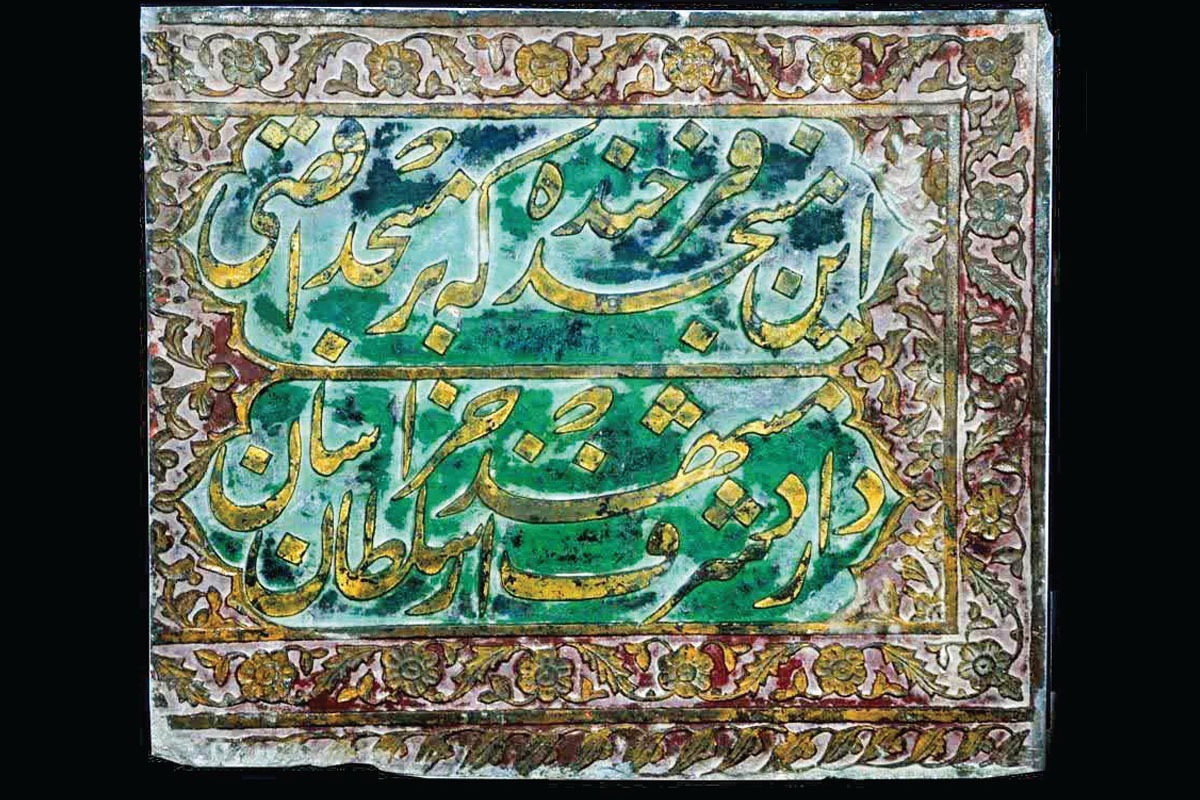 این مسجد فرخنده که بر مسجد اقصی
دارد شرف از سلطان شهنشه خراسان